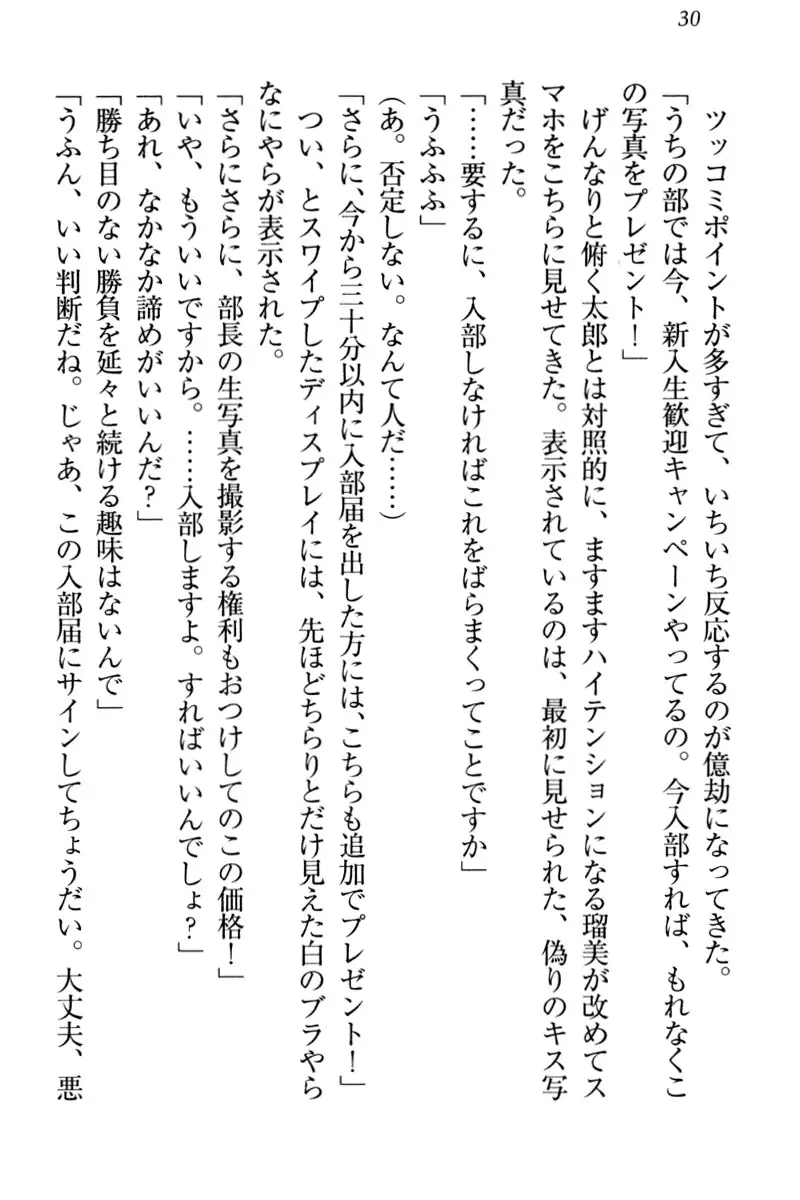 30
ツッコミポイントが多すぎて、いちいち反応するのが億劫になってきた。
「うちの部では今、新入生歓迎キャンペーンやってるの。今入部すれば、もれなくこ
の写真をプレゼント！」
げんなりと俯く太郎とは対照的に、ますますハイテンションになる瑠美が改めてス
マホをこちらに見せてきた。表示されているのは、最初に見せられた、偽りのキス写
真だった。
「……要するに、入部しなければこれをばらまくってことですか」
「うふふふ」
（あ。否定しない。なんて人だ……）
「さらに、今から三十分以内に入部届を出した方には、こちらも追加でプレゼント！」
つい、とスワイプしたディスプレイには、先ほどちらりとだけ見えた白のブラやら
なにやらが表示された。
「さらにさらに、部長の生写真を撮影する権利もおつけしてのこの価格！」
「いや、もういいですから。……入部しますよ。すればいいんでしょ？」
「あれ、なかなか諦めがいいんだ？」
「勝ち目のない勝負を延々と続ける趣味はないんで」
「うふん、いい判断だね。じゃあ、この入部届にサインしてちょうだい。大丈夫、悪